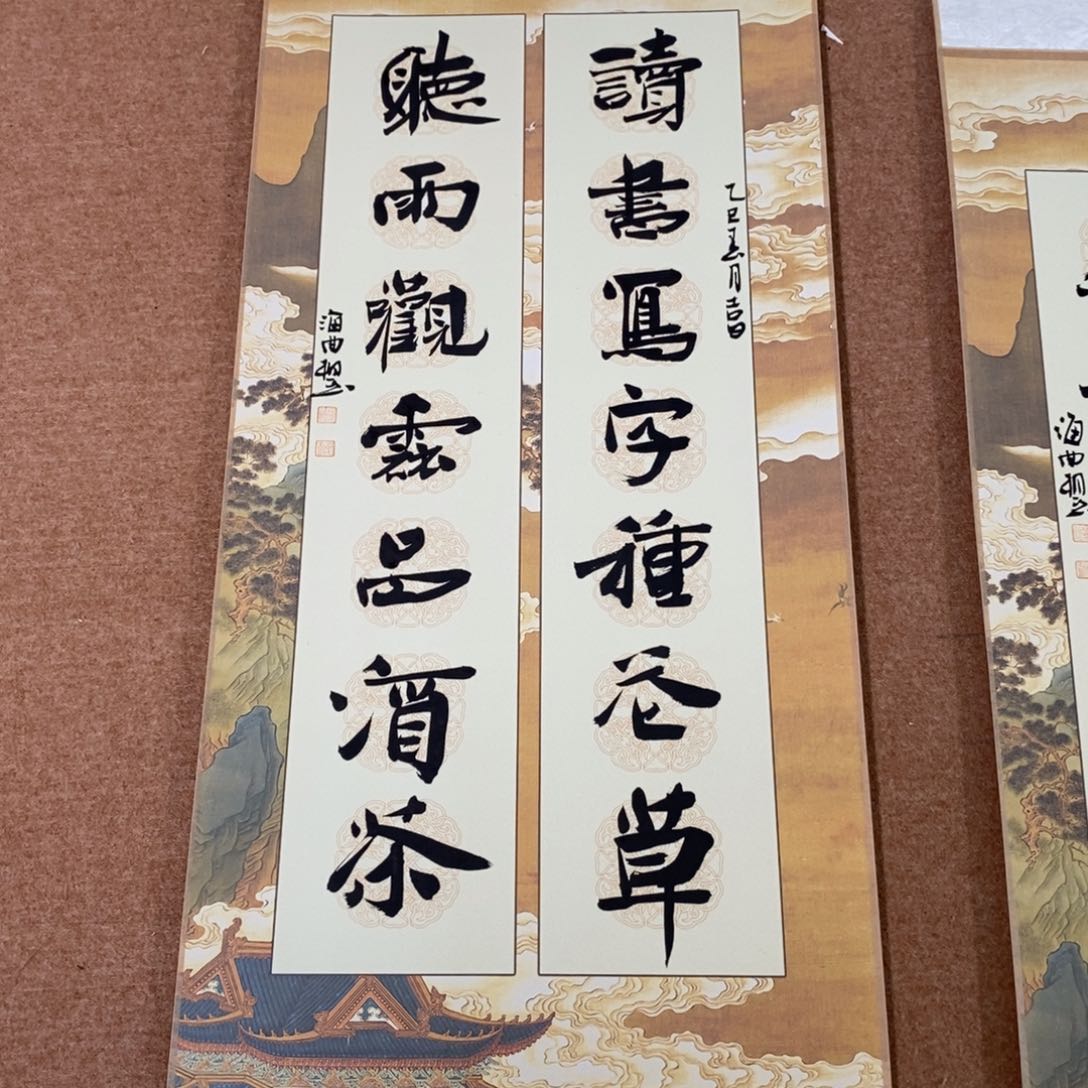 讀書寫字種花草
乙巳春月吉日
聽雨觀雲品酒茶
海曲
海曲